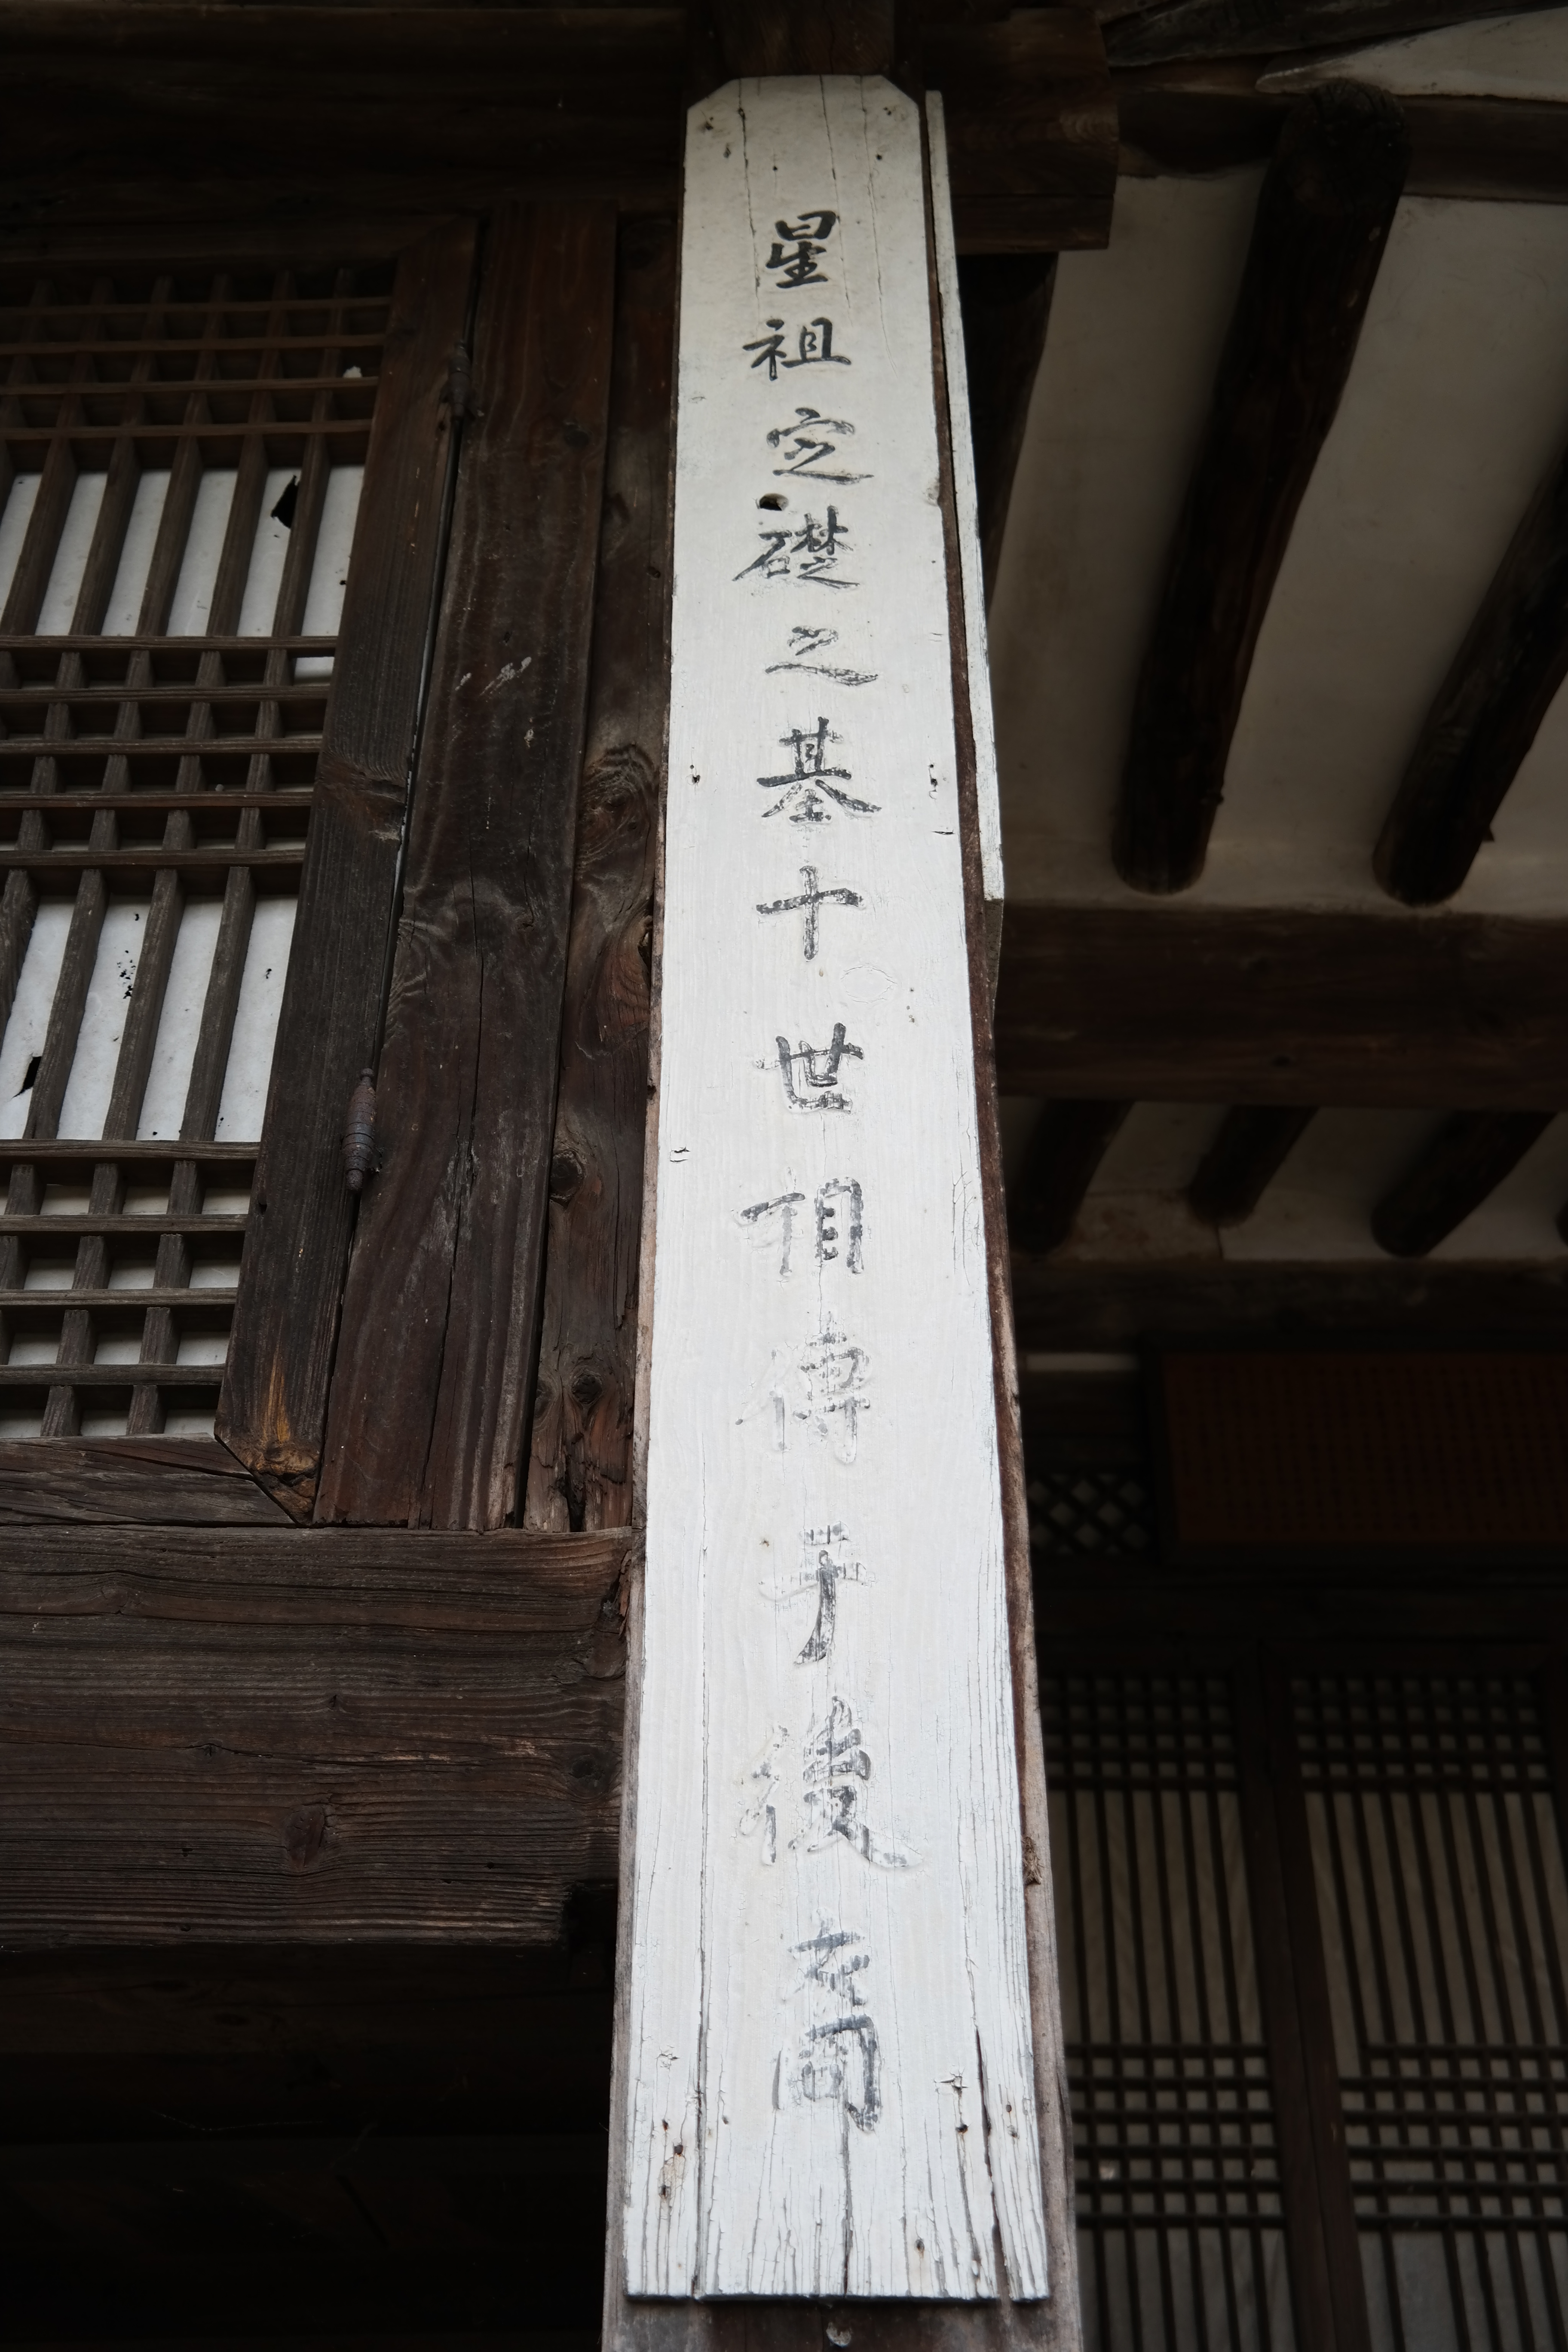 星祖定礎之基十世相傳于後裔